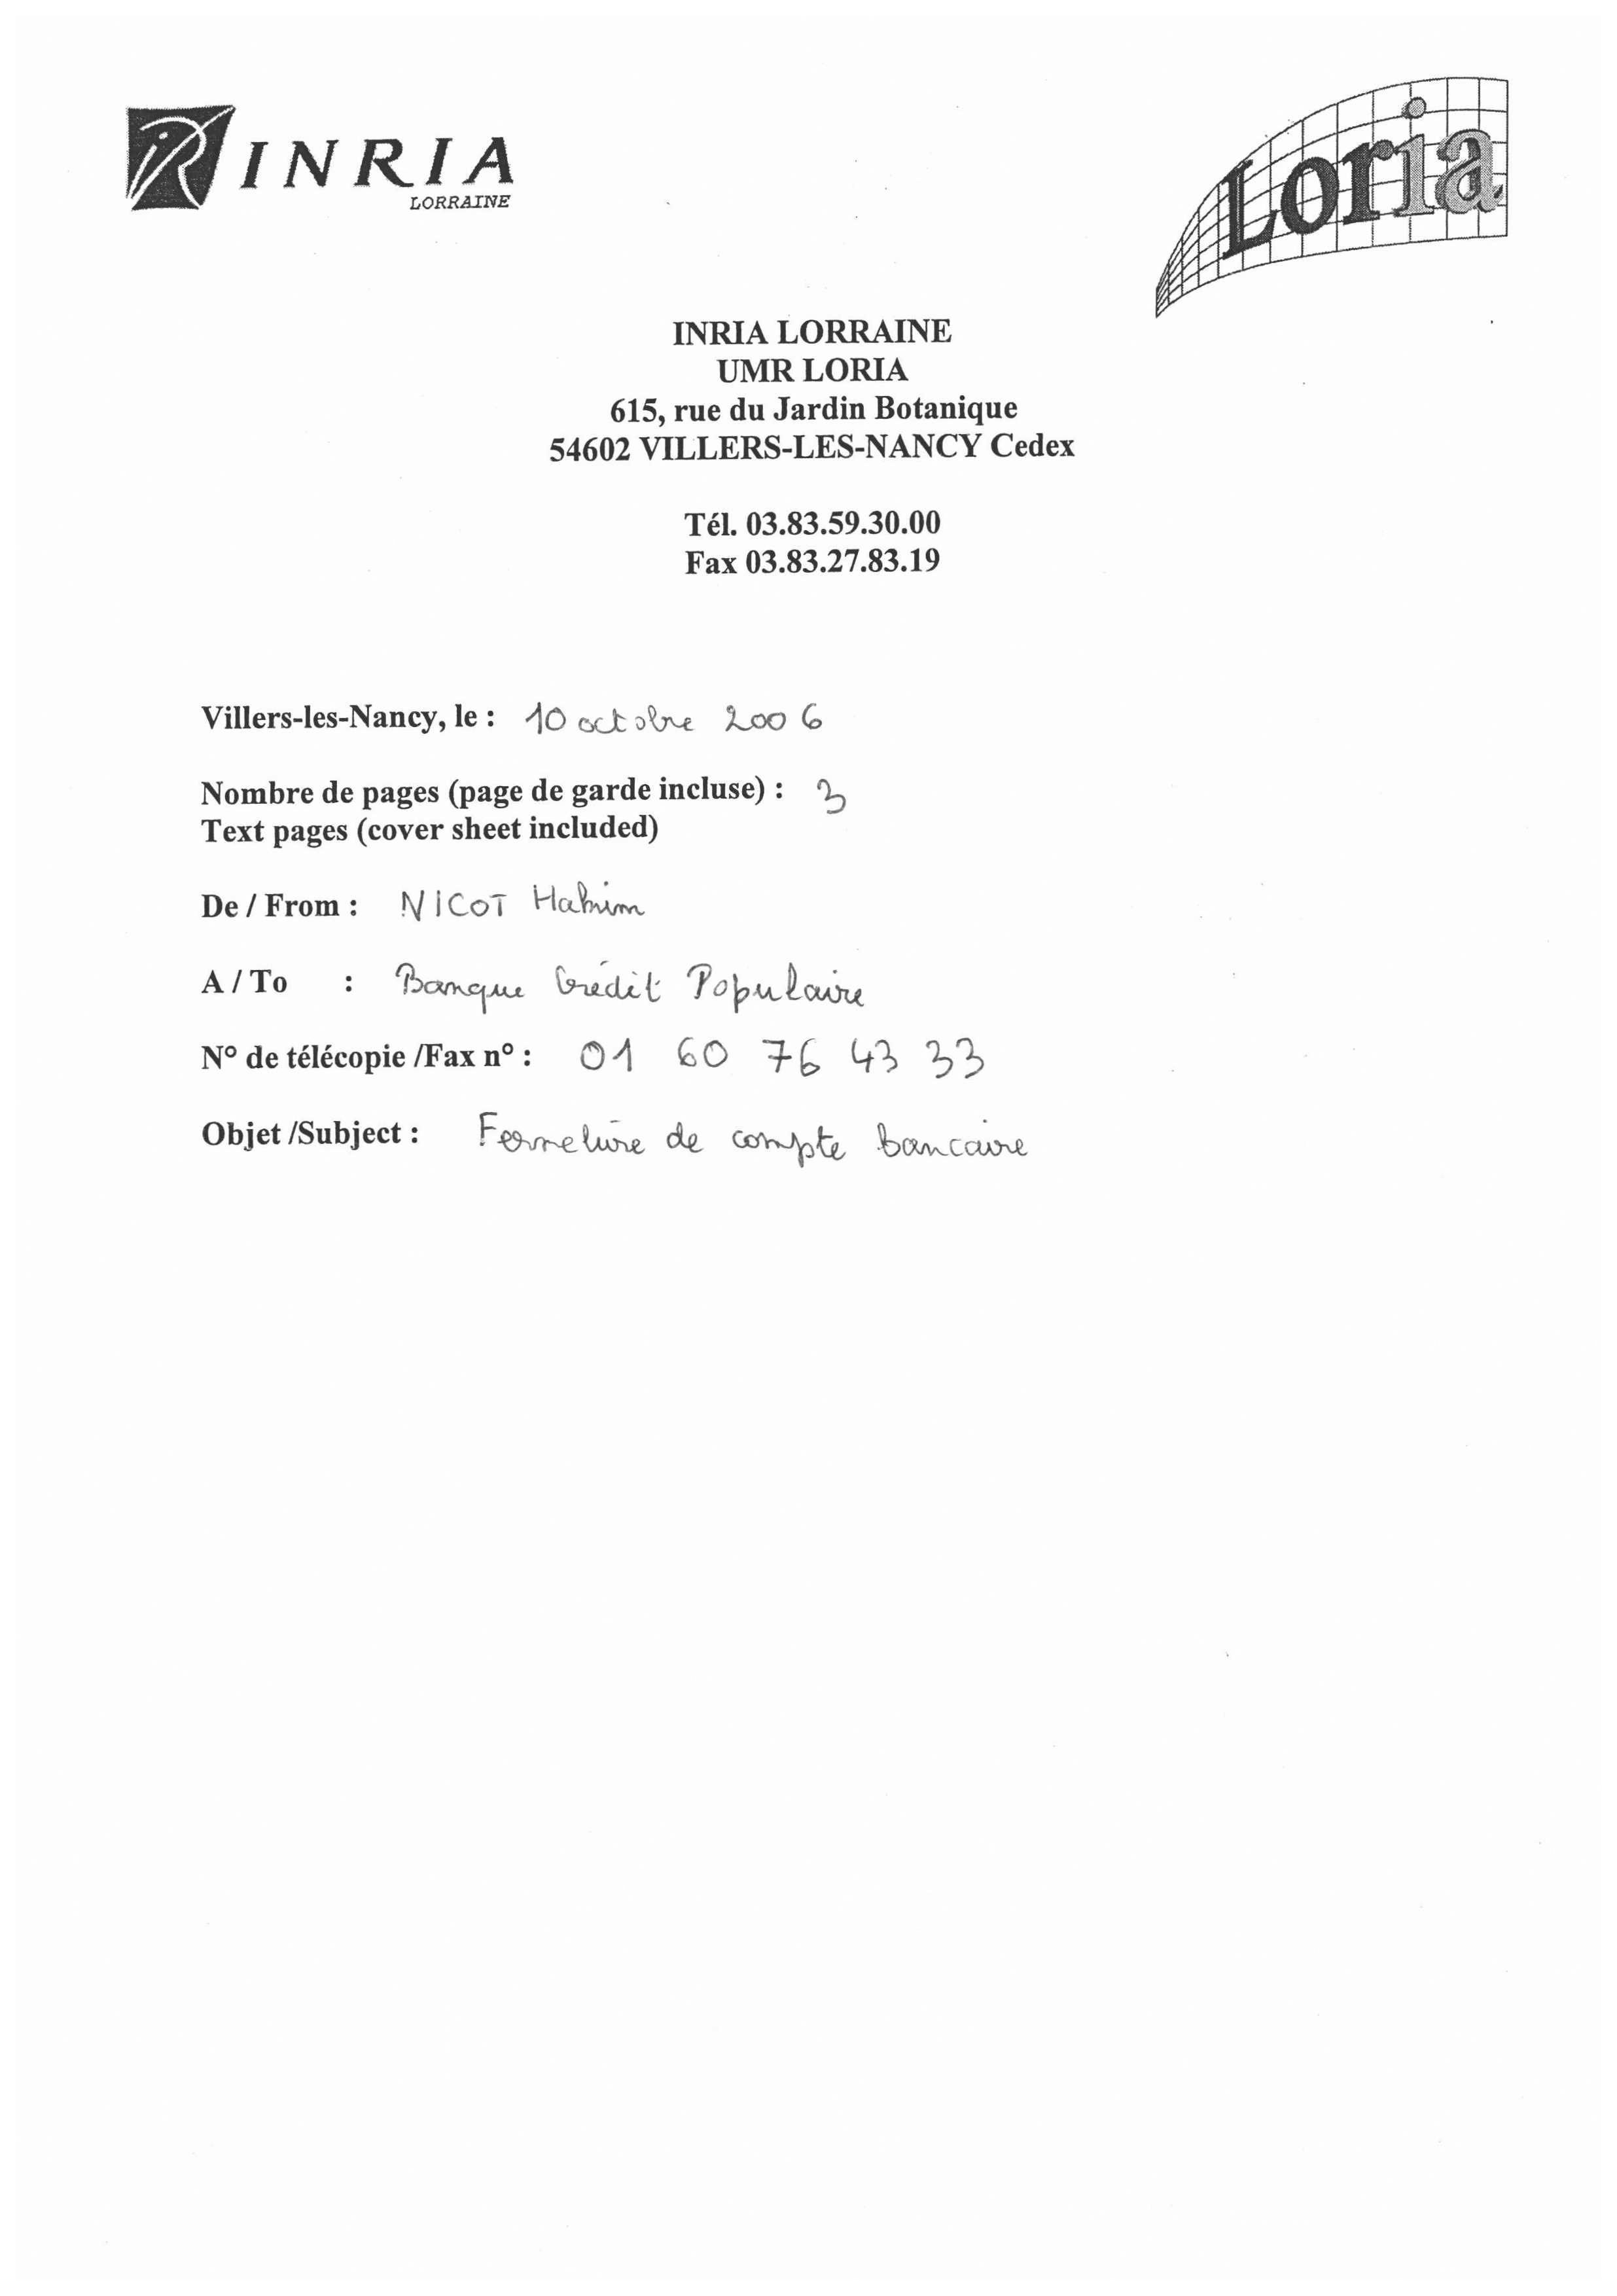 INRIA
LORRAINE
Loria
INRIA LORRAINE
UMR LORIA
615, rue du Jardin Botanique
54602 VILLERS-LES-NANCY Cedex
Tél. 03.83.59.30.00
Fax 03.83.27.83.19
Villers-les-Nancy, le : 10 octobre 2006
Nombre de pages (page de garde incluse) : 3
Text pages (cover sheet included)
De / From : NICOT Hakim
A / To : Banque Crédit Populaire
N° de télécopie /Fax n° : 01 60 76 43 33
Objet /Subject : Fermeture de compte bancaire